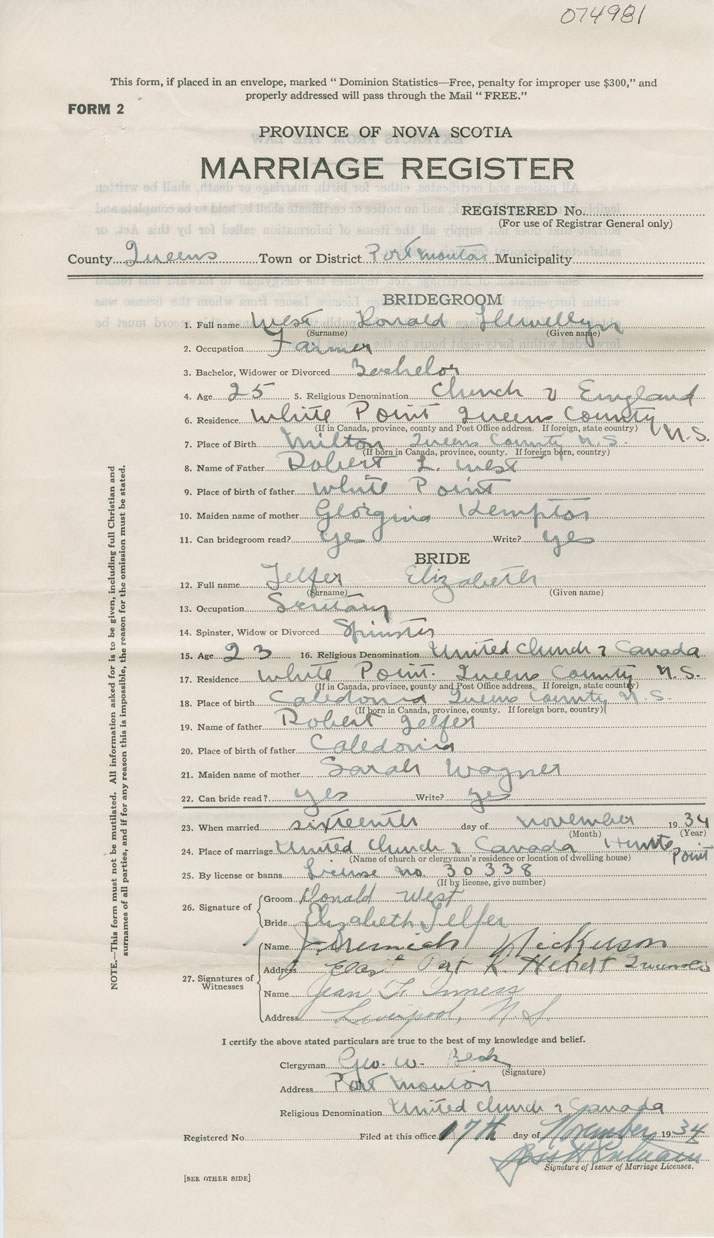 074981
This form, if placed in an envelope, marked "Dominion Statistics—Free, penalty for improper use $300," and
properly addressed will pass through the Mail "FREE."
FORM 2
PROVINCE OF NOVA SCOTIA
MARRIAGE REGISTER
REGISTERED No.
(For use of Registrar General only)
County Queens Town or District Port mouton Municipality
BRIDEGROOM
1. Full name West Donald Llewellyn
(Surname) (Given name)
2. Occupation Farmer
3. Bachelor, Widower or Divorced Bachelor
4. Age 25 5. Religious Denomination Church of England
6. Residence White Point Queens County N.S.
(If in Canada, province, county and Post Office address. If foreign, state county)
7. Place of Birth Milton Queens County N.S.
(If born in Canada, province, county. If foreign born, country)
8. Name of Father Robert L. West
9. Place of birth of father White Point
10. Maiden name of mother Georgina Kempton
11. Can bridegroom read? Yes Write? Yes
BRIDE
12. Full name Telfer Elizabeth
(Surname) (Given name)
13. Occupation
14. Spinster, Widow or Divorced Spinster
15. Age 23 16. Religious Denomination United Church of Canada
17. Residence White Point. Queens County N.S.
(If in Canada, province, county and Post Office address. If foreign, state county)
18. Place of birth Caledonia Queens County N.S.
(If born in Canada, province, county. If foreign born, country)
19. Name of father Robert Telfer
20. Place of birth of father Caledonia
21. Maiden name of mother Sarah Wagner
22. Can bride read? Yes Write? Yes
23. When married sixteenth day of november 1934
(Month) (Year)
24. Place of marriage United Church of Canada Hunts Point
(Name of church or clergyman's residence or location of dwelling house)
25. By license or banns License no. 30338
(If by license, give number)
26. Signature of Groom Donald West
Bride Elizabeth Telfer
27. Signatures of Witnesses
Name Jeremiah Nickerson
Address Port Hebert
Name Jean T. Inness
Address Liverpool, N.S.
I certify the above stated particulars are true to the best of my knowledge and belief.
Clergyman Geo. W. Beck
(Signature)
Address Port Mouton
Religious Denomination United Church of Canada
Registered No. Filed at this office 17th day of November 1934
Signature of Issuer of Marriage Licenses.
[SEE OTHER SIDE]
NOTE.—This form must not be mutilated. All information asked for is to be given, including full Christian and
surnames of all parties, and if for any reason this is impossible, the reason for the omission must be stated.